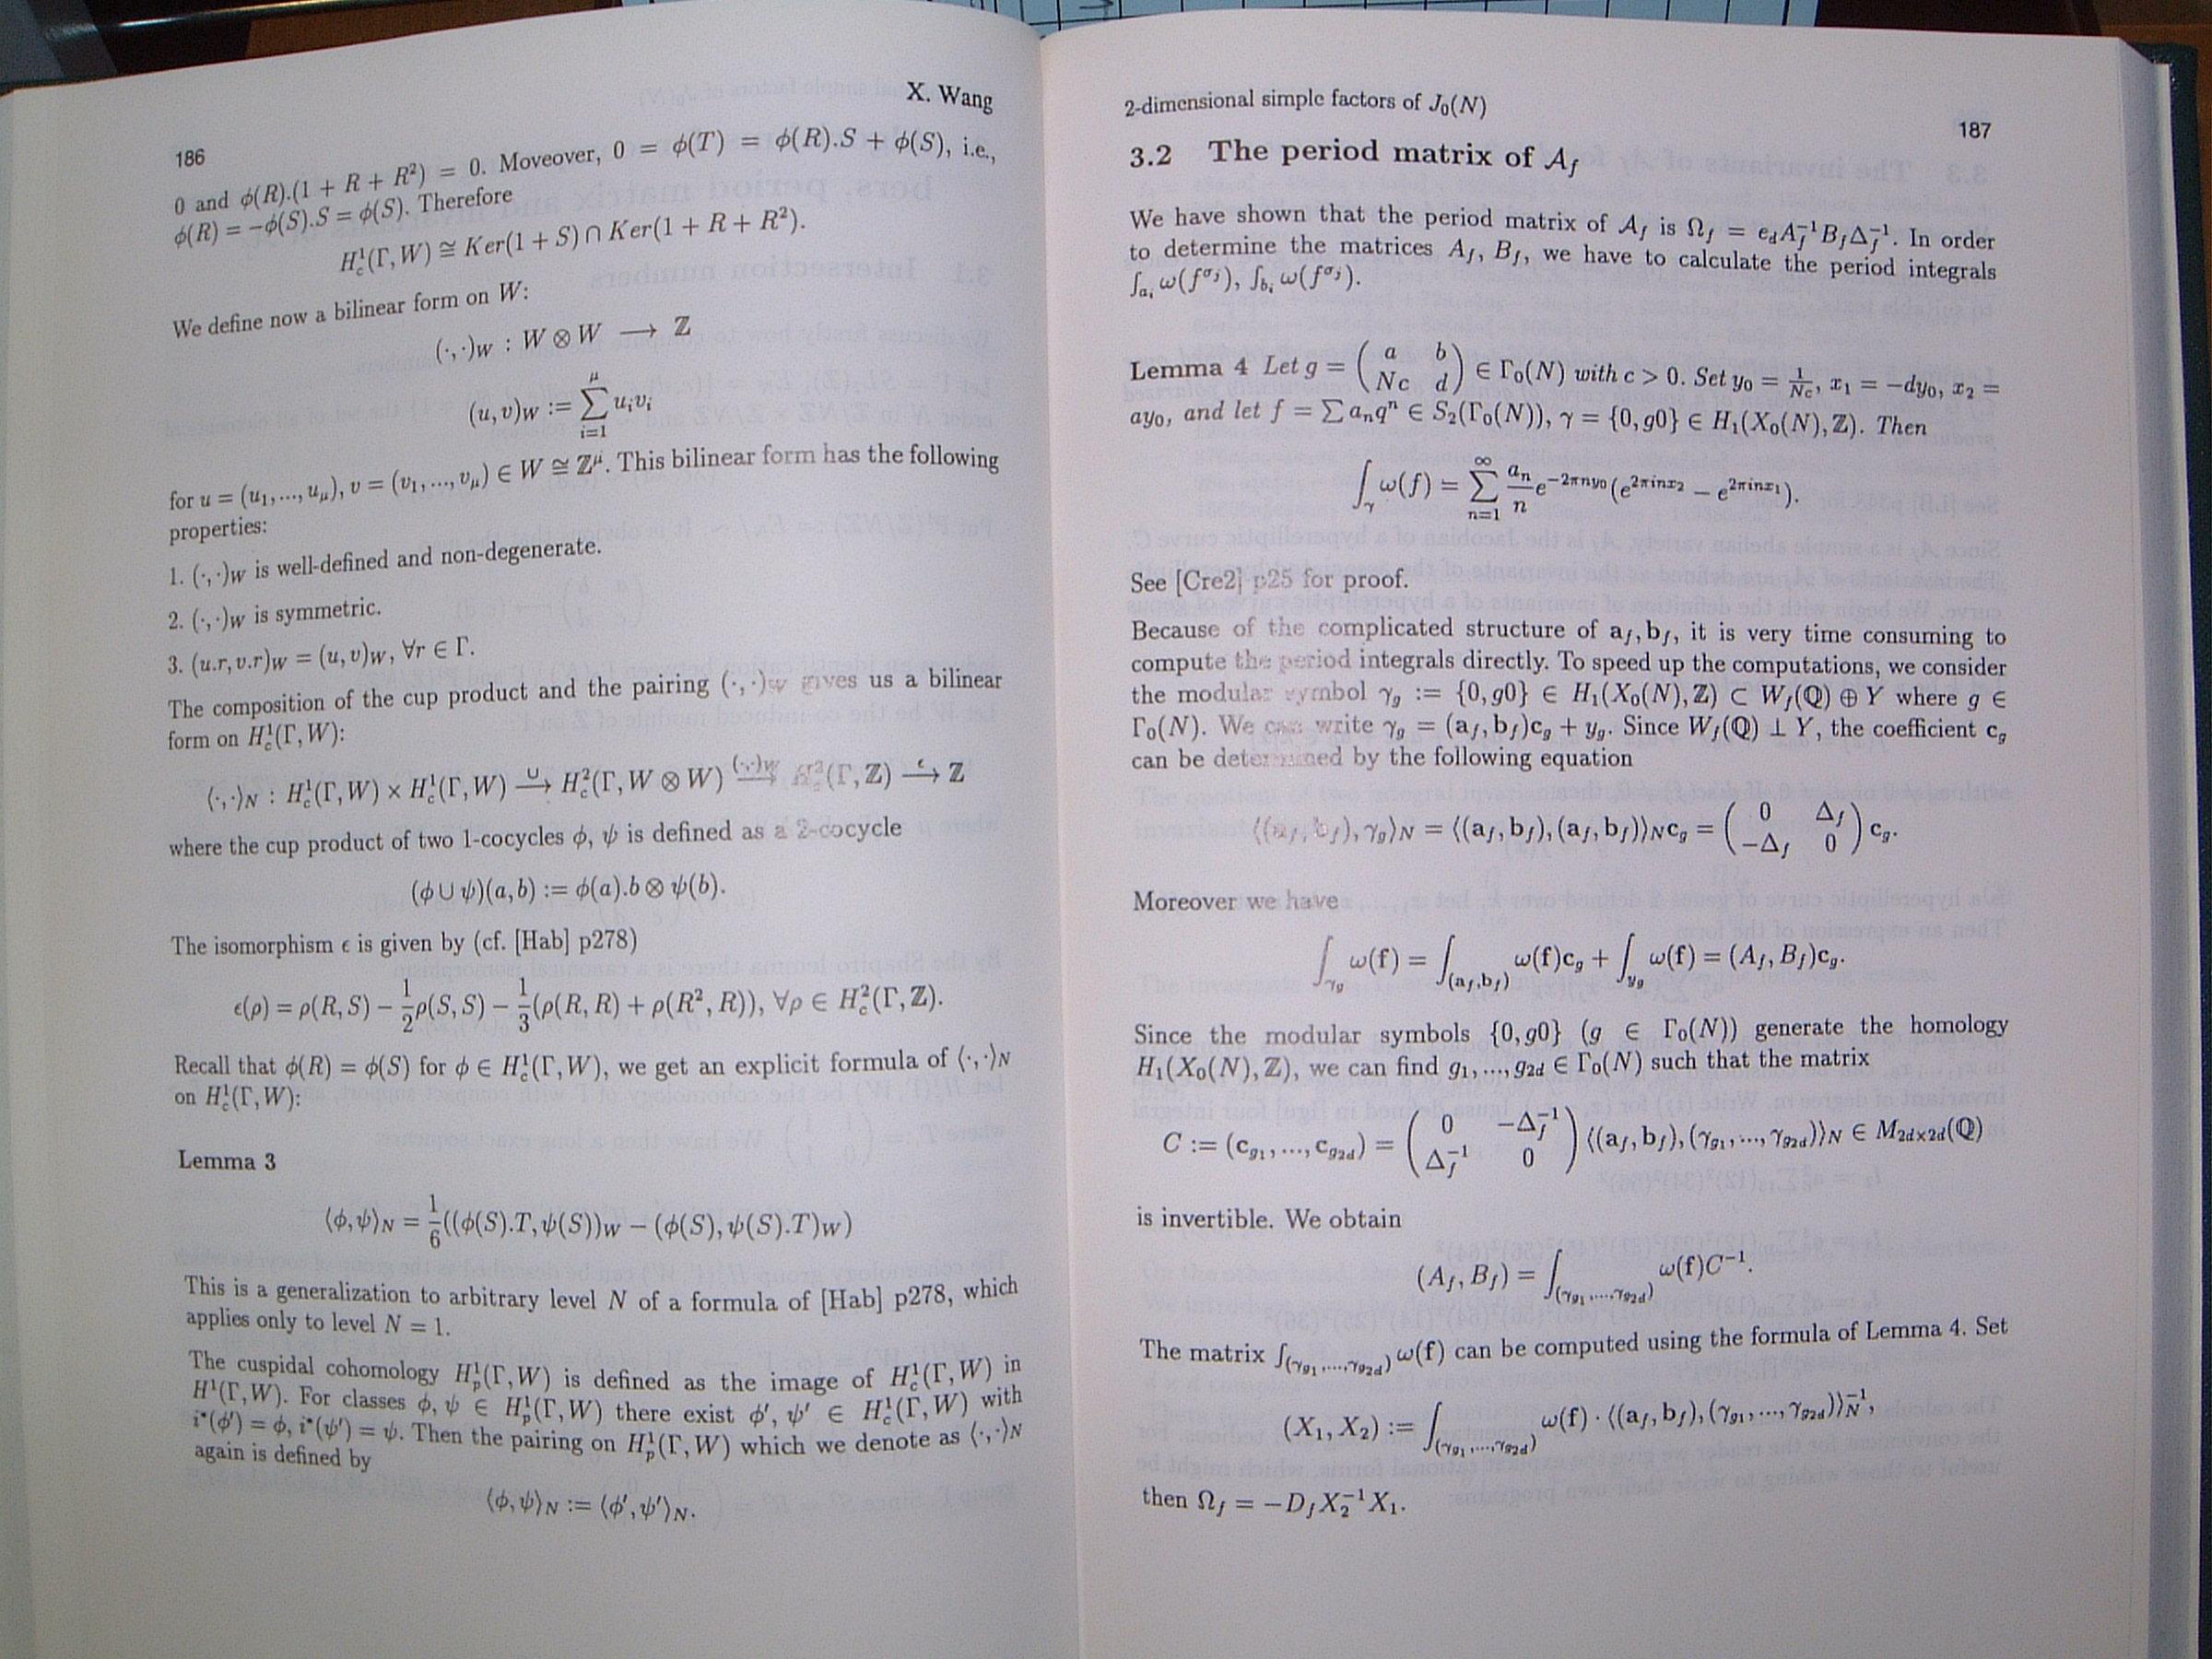 186
X. Wang
0 and ϕ(R).(1 + R + R²) = 0. Moveover, 0 = ϕ(T) = ϕ(R).S + ϕ(S), i.e.,
ϕ(R) = −ϕ(S).S = ϕ(S). Therefore
H¹_c(Γ, W) ≅ Ker(1 + S) ∩ Ker(1 + R + R²).
We define now a bilinear form on W:
(·,·)_W : W ⊗ W ⟶ ℤ
(u, v)_W := ∑_{i=1}^{μ} u_i v_i
for u = (u₁, ..., u_μ), v = (v₁, ..., v_μ) ∈ W ≅ ℤ^μ. This bilinear form has the following
properties:
1. (·,·)_W is well-defined and non-degenerate.
2. (·,·)_W is symmetric.
3. (u.r, v.r)_W = (u, v)_W, ∀r ∈ Γ.
The composition of the cup product and the pairing (·,·)_W gives us a bilinear
form on H¹_c(Γ, W):
⟨·,·⟩_N : H¹_c(Γ, W) × H¹_c(Γ, W) —∪→ H²_c(Γ, W ⊗ W) —(·,·)_W→ H²_c(Γ, ℤ) —ϵ→ ℤ
where the cup product of two 1-cocycles ϕ, ψ is defined as a 2-cocycle
(ϕ ∪ ψ)(a, b) := ϕ(a).b ⊗ ψ(b).
The isomorphism ϵ is given by (cf. [Hab] p278)
ϵ(ρ) = ρ(R, S) − 1/2 ρ(S, S) − 1/3 (ρ(R, R) + ρ(R², R)), ∀ρ ∈ H²_c(Γ, ℤ).
Recall that ϕ(R) = ϕ(S) for ϕ ∈ H¹_c(Γ, W), we get an explicit formula of ⟨·,·⟩_N
on H¹_c(Γ, W):
Lemma 3
⟨ϕ, ψ⟩_N = 1/6 ((ϕ(S).T, ψ(S))_W − (ϕ(S), ψ(S).T)_W)
This is a generalization to arbitrary level N of a formula of [Hab] p278, which
applies only to level N = 1.
The cuspidal cohomology H¹_p(Γ, W) is defined as the image of H¹_c(Γ, W) in
H¹(Γ, W). For classes ϕ, ψ ∈ H¹_p(Γ, W) there exist ϕ′, ψ′ ∈ H¹_c(Γ, W) with
i*(ϕ′) = ϕ, i*(ψ′) = ψ. Then the pairing on H¹_p(Γ, W) which we denote as ⟨·,·⟩_N
again is defined by
⟨ϕ, ψ⟩_N := ⟨ϕ′, ψ′⟩_N.
2-dimensional simple factors of J₀(N)
187
3.2 The period matrix of A_f
We have shown that the period matrix of A_f is Ω_f = e_d A_f⁻¹ B_f Δ_f⁻¹. In order
to determine the matrices A_f, B_f, we have to calculate the period integrals
∫_{a_i} ω(f^{σ_j}), ∫_{b_i} ω(f^{σ_j}).
Lemma 4 Let g = ( a b ; Nc d ) ∈ Γ₀(N) with c > 0. Set y₀ = 1/Nc, x₁ = −dy₀, x₂ =
ay₀, and let f = ∑ a_n q^n ∈ S₂(Γ₀(N)), γ = {0, g0} ∈ H₁(X₀(N), ℤ). Then
∫_γ ω(f) = ∑_{n=1}^{∞} a_n/n e^{−2πny₀} (e^{2πinx₂} − e^{2πinx₁}).
See [Cre2] p25 for proof.
Because of the complicated structure of a_f, b_f, it is very time consuming to
compute the period integrals directly. To speed up the computations, we consider
the modular symbol γ_g := {0, g0} ∈ H₁(X₀(N), ℤ) ⊂ W_f(ℚ) ⊕ Y where g ∈
Γ₀(N). We can write γ_g = (a_f, b_f)c_g + y_g. Since W_f(ℚ) ⊥ Y, the coefficient c_g
can be determined by the following equation
⟨(a_f, b_f), γ_g⟩_N = ⟨(a_f, b_f), (a_f, b_f)⟩_N c_g = ( 0 Δ_f ; −Δ_f 0 ) c_g.
Moreover we have
∫_{γ_g} ω(f) = ∫_{(a_f,b_f)} ω(f)c_g + ∫_{y_g} ω(f) = (A_f, B_f)c_g.
Since the modular symbols {0, g0} (g ∈ Γ₀(N)) generate the homology
H₁(X₀(N), ℤ), we can find g₁, ..., g_{2d} ∈ Γ₀(N) such that the matrix
C := (c_{g₁}, ..., c_{g_{2d}}) = ( 0 −Δ_f⁻¹ ; Δ_f⁻¹ 0 ) ⟨(a_f, b_f), (γ_{g₁}, ..., γ_{g_{2d}})⟩_N ∈ M_{2d×2d}(ℚ)
is invertible. We obtain
(A_f, B_f) = ∫_{(γ_{g₁},....,γ_{g_{2d}})} ω(f)C⁻¹.
The matrix ∫_{(γ_{g₁},....,γ_{g_{2d}})} ω(f) can be computed using the formula of Lemma 4. Set
(X₁, X₂) := ∫_{(γ_{g₁},....,γ_{g_{2d}})} ω(f) · ⟨(a_f, b_f), (γ_{g₁}, ..., γ_{g_{2d}})⟩_N⁻¹,
then Ω_f = −D_f X₂⁻¹ X₁.